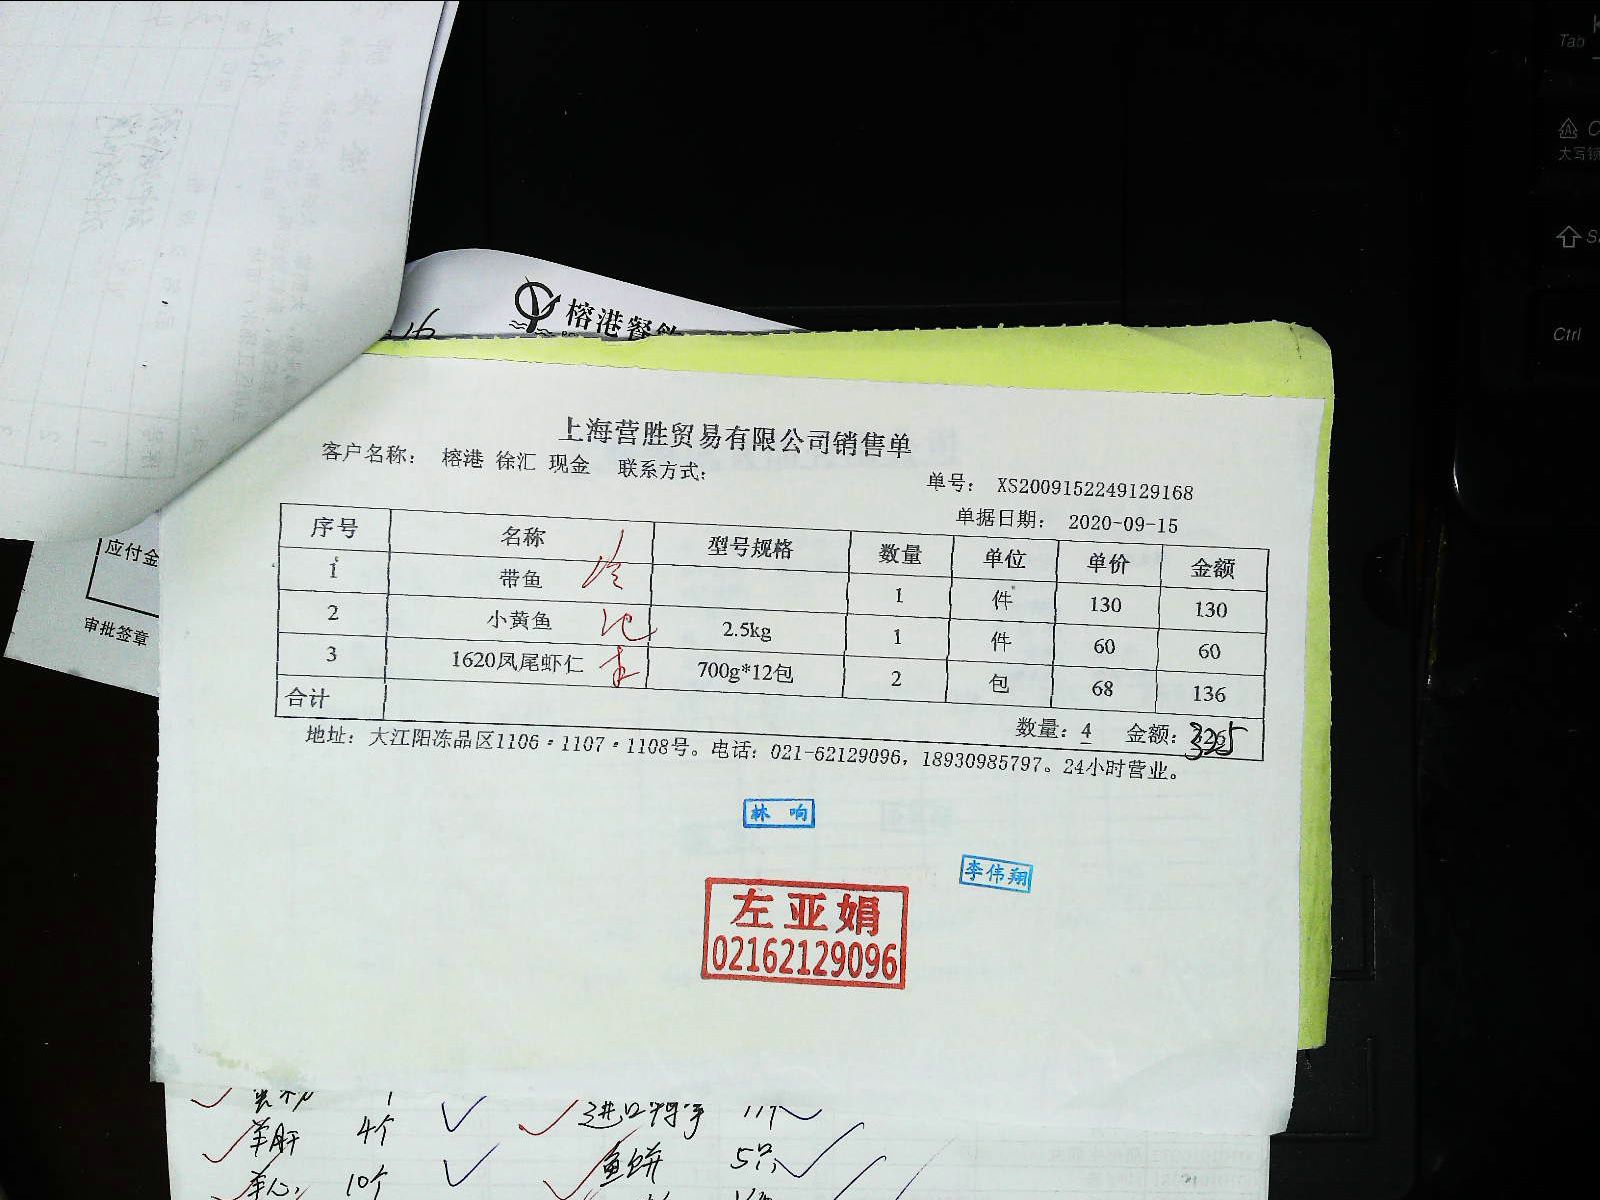 榕港餐飲
上海营胜贸易有限公司销售单
客户名称: 榕港 徐汇 现金 联系方式:
单号: XS2009152249129168
单据日期: 2020-09-15
序号 名称 型号规格 数量 单位 单价 金额
1 带鱼 1 件 130 130
2 小黄鱼 2.5kg 1 件 60 60
3 1620凤尾虾仁 700g*12包 2 包 68 136
合计 数量: 4 金额: 325
地址: 大江阳冻品区1106·1107·1108号。电话: 021-62129096, 18930985797。24小时营业。
林 响
李伟翔
左亚娟
02162129096
应付金
审批签章
羊肝 4个
羊心 10个
进口 11个
鱼饼 5只
Tab
大写锁
Ctrl